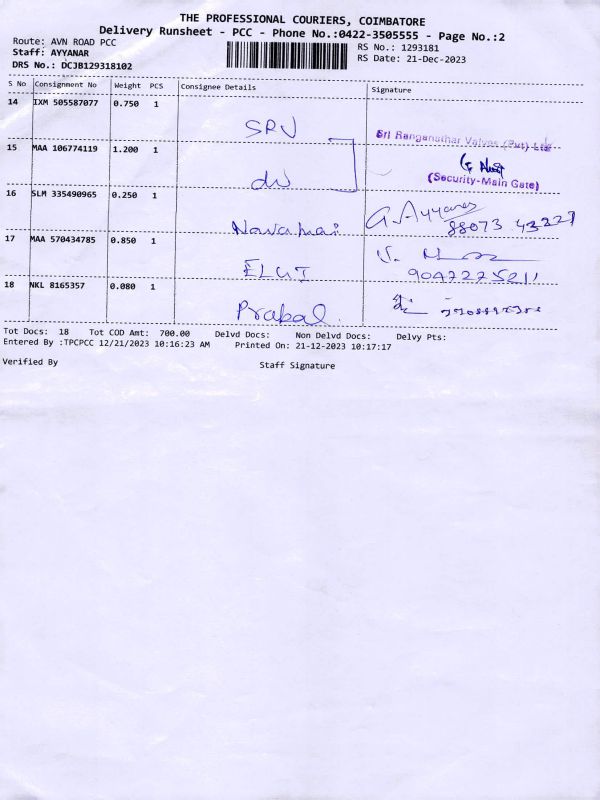 THE PROFESSIONAL COURIERS, COIMBATORE
Delivery Runsheet - PCC - Phone No.:0422-3505555 - Page No.:2
Route: AVN ROAD PCC
RS No.: 1293181
Staff: AYYANAR
RS Date: 21-Dec-2023
DRS No.: DCJB129318102
S No Consignment No Weight PCS Consignee Details Signature
14 IXM 505587077 0.750 1
SRV
Sri Ranganathar Valves (Pvt) Ltd
15 MAA 106774119 1.200 1
(Security-Main Gate)
16 SLM 335490965 0.250 1
G. Ayyanar
88073 43227
17 MAA 570434785 0.850 1
ELGI
9047275211
18 NKL 8165357 0.080 1
Prabal.
Tot Docs: 18 Tot COD Amt: 700.00 Delvd Docs: Non Delvd Docs: Delvy Pts:
Entered By :TPCPCC 12/21/2023 10:16:23 AM Printed On: 21-12-2023 10:17:17
Verified By Staff Signature